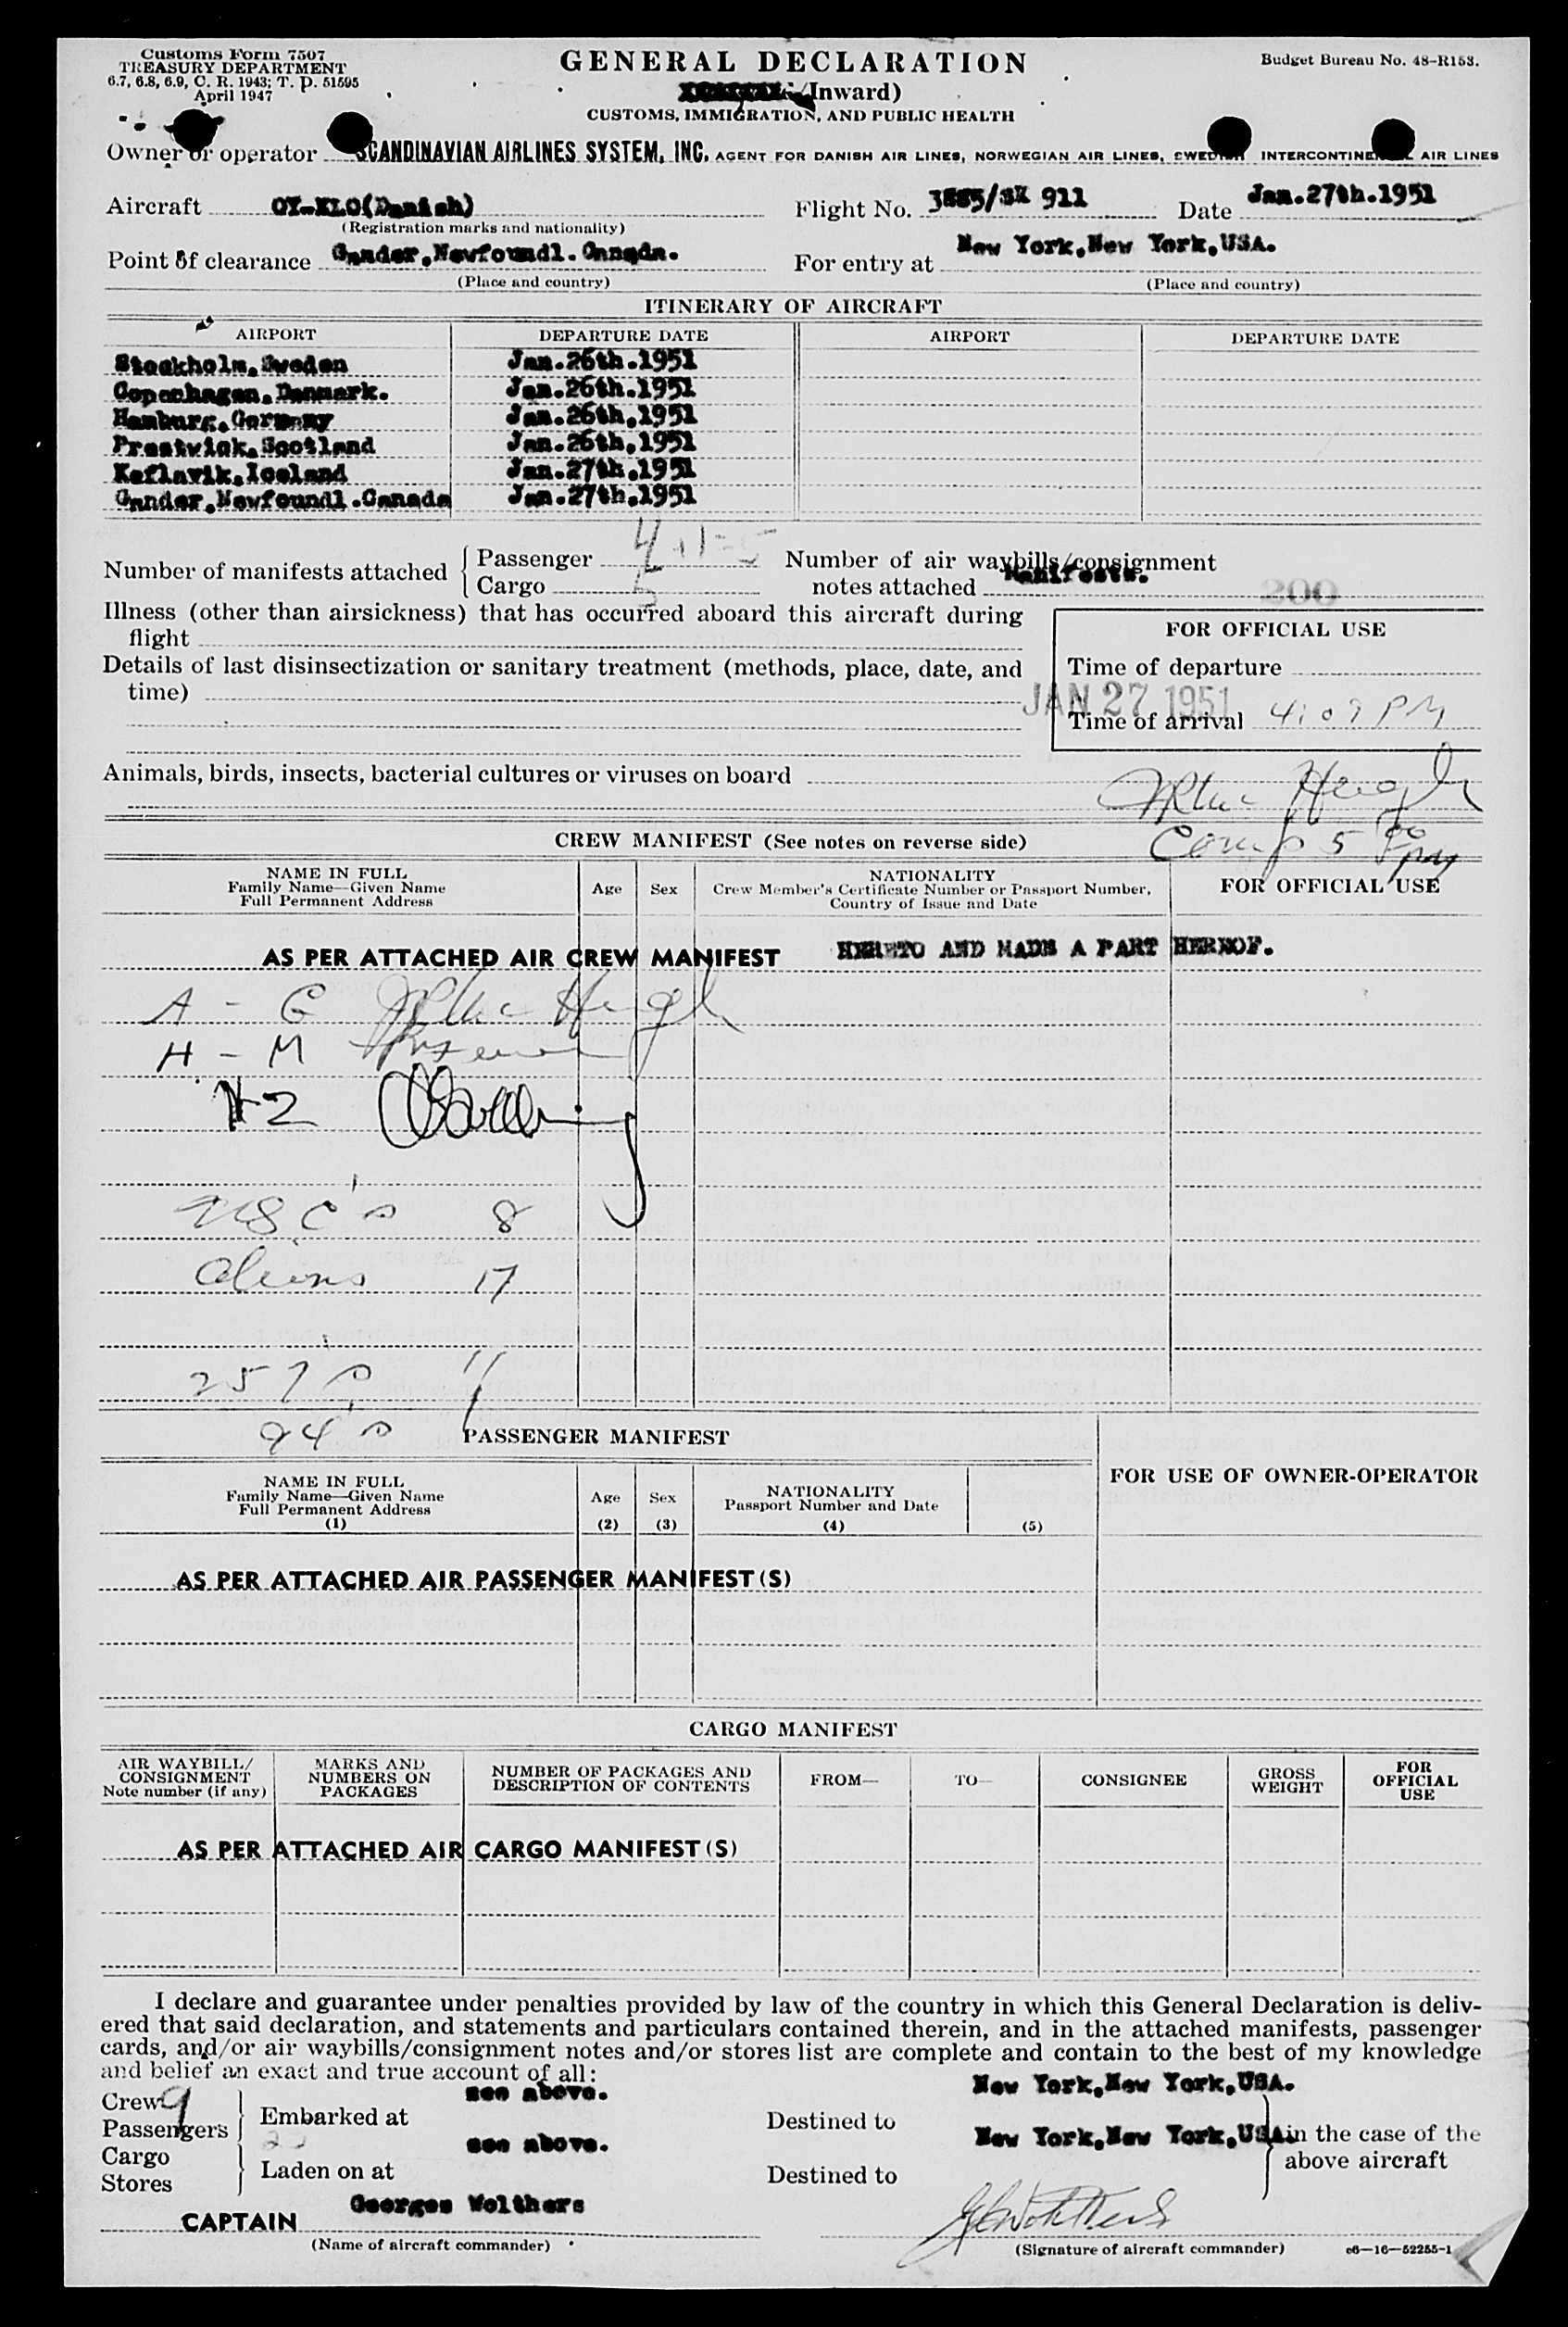 Customs Form 7507
TREASURY DEPARTMENT
6.7, 6.8, 6.9, C. R. 1943; T. D. 51595
April 1947
GENERAL DECLARATION
Inward)
CUSTOMS, IMMIGRATION, AND PUBLIC HEALTH
Budget Bureau No. 48-R153.
Owner or operator SCANDINAVIAN AIRLINES SYSTEM, INC. AGENT FOR DANISH AIR LINES, NORWEGIAN AIR LINES, SWEDISH INTERCONTINENTAL AIR LINES
Aircraft OY-KLO(Danish) Flight No. SK 911 Date Jan.27th.1951
(Registration marks and nationality)
Point of clearance Gander,Newfoundl.Canada. For entry at New York,New York,USA.
(Place and country) (Place and country)
ITINERARY OF AIRCRAFT
AIRPORT DEPARTURE DATE AIRPORT DEPARTURE DATE
Stockholm,Sweden Jan.26th.1951
Copenhagen,Danmark. Jan.26th.1951
Hamburg,Germany Jan.26th,1951
Prestwick,Scotland Jan.26th,1951
Keflavik,Iceland Jan.27th,1951
Gander,Newfoundl.Canada Jan.27th,1951
Number of manifests attached Passenger 4+1=5 Number of air waybills/consignment
Cargo 5 notes attached Manifests.
200
Illness (other than airsickness) that has occurred aboard this aircraft during
flight
FOR OFFICIAL USE
Details of last disinsectization or sanitary treatment (methods, place, date, and
time)
Time of departure
JAN 27 1951
Time of arrival 4:07 PM
Animals, birds, insects, bacterial cultures or viruses on board
CREW MANIFEST (See notes on reverse side)
Comp 5
NAME IN FULL
Family Name—Given Name
Full Permanent Address
Age Sex
NATIONALITY
Crew Member's Certificate Number or Passport Number,
Country of Issue and Date
FOR OFFICIAL USE
AS PER ATTACHED AIR CREW MANIFEST HERETO AND MADE A PART HEREOF.
A - G
H - M
N-Z
USC's 8
Aliens 17
257's 11
94's
PASSENGER MANIFEST
NAME IN FULL
Family Name—Given Name
Full Permanent Address
(1)
Age
(2)
Sex
(3)
NATIONALITY
Passport Number and Date
(4) (5)
FOR USE OF OWNER-OPERATOR
AS PER ATTACHED AIR PASSENGER MANIFEST(S)
CARGO MANIFEST
AIR WAYBILL/
CONSIGNMENT
Note number (if any)
MARKS AND
NUMBERS ON
PACKAGES
NUMBER OF PACKAGES AND
DESCRIPTION OF CONTENTS
FROM— TO— CONSIGNEE
GROSS
WEIGHT
FOR
OFFICIAL
USE
AS PER ATTACHED AIR CARGO MANIFEST(S)
I declare and guarantee under penalties provided by law of the country in which this General Declaration is deliv-
ered that said declaration, and statements and particulars contained therein, and in the attached manifests, passenger
cards, and/or air waybills/consignment notes and/or stores list are complete and contain to the best of my knowledge
and belief an exact and true account of all:
Crew 9
Passengers
Embarked at see above. Destined to New York,New York,USA.
Cargo
Stores
Laden on at see above. Destined to New York,New York,USA.
in the case of the
above aircraft
CAPTAIN Georges Wolthers
(Name of aircraft commander) (Signature of aircraft commander) c6—16—52255-1